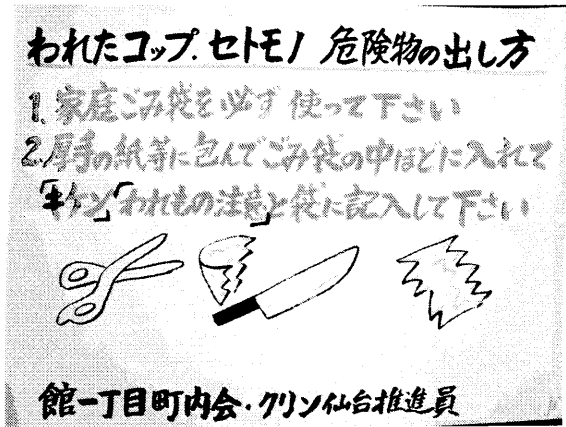 われたコップ.セトモノ 危険物の出し方
1.家庭ごみ袋を必ず使って下さい
2.厚手の紙等に包んでごみ袋の中ほどに入れて
「キケン」「われもの注意」と袋に記入して下さい
館一丁目町内会・クリン仙台推進員